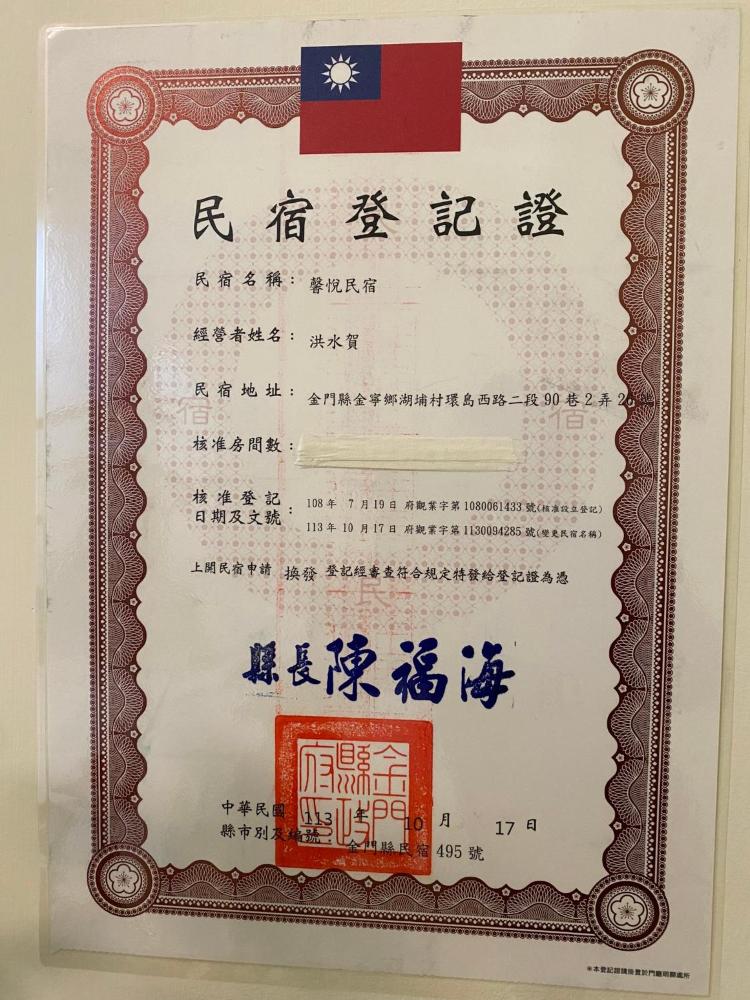 民宿登記證
民宿名稱：馨悅民宿
經營者姓名：洪水賀
民宿地址：金門縣金寧鄉湖埔村環島西路二段90巷2弄2號
核准房間數：
核准登記
日期及文號：
108年 7月19日 府觀業字第1080061433號(核准設立登記)
113年10月17日 府觀業字第1130094285號(變更民宿名稱)
上開民宿申請 換發 登記經審查符合規定特發給登記證為憑
縣長陳福海
金門縣政府印
中華民國 113 年 10 月 17 日
縣市別及編號：金門縣民宿495號
※本登記證請掛置於門廳明顯處所